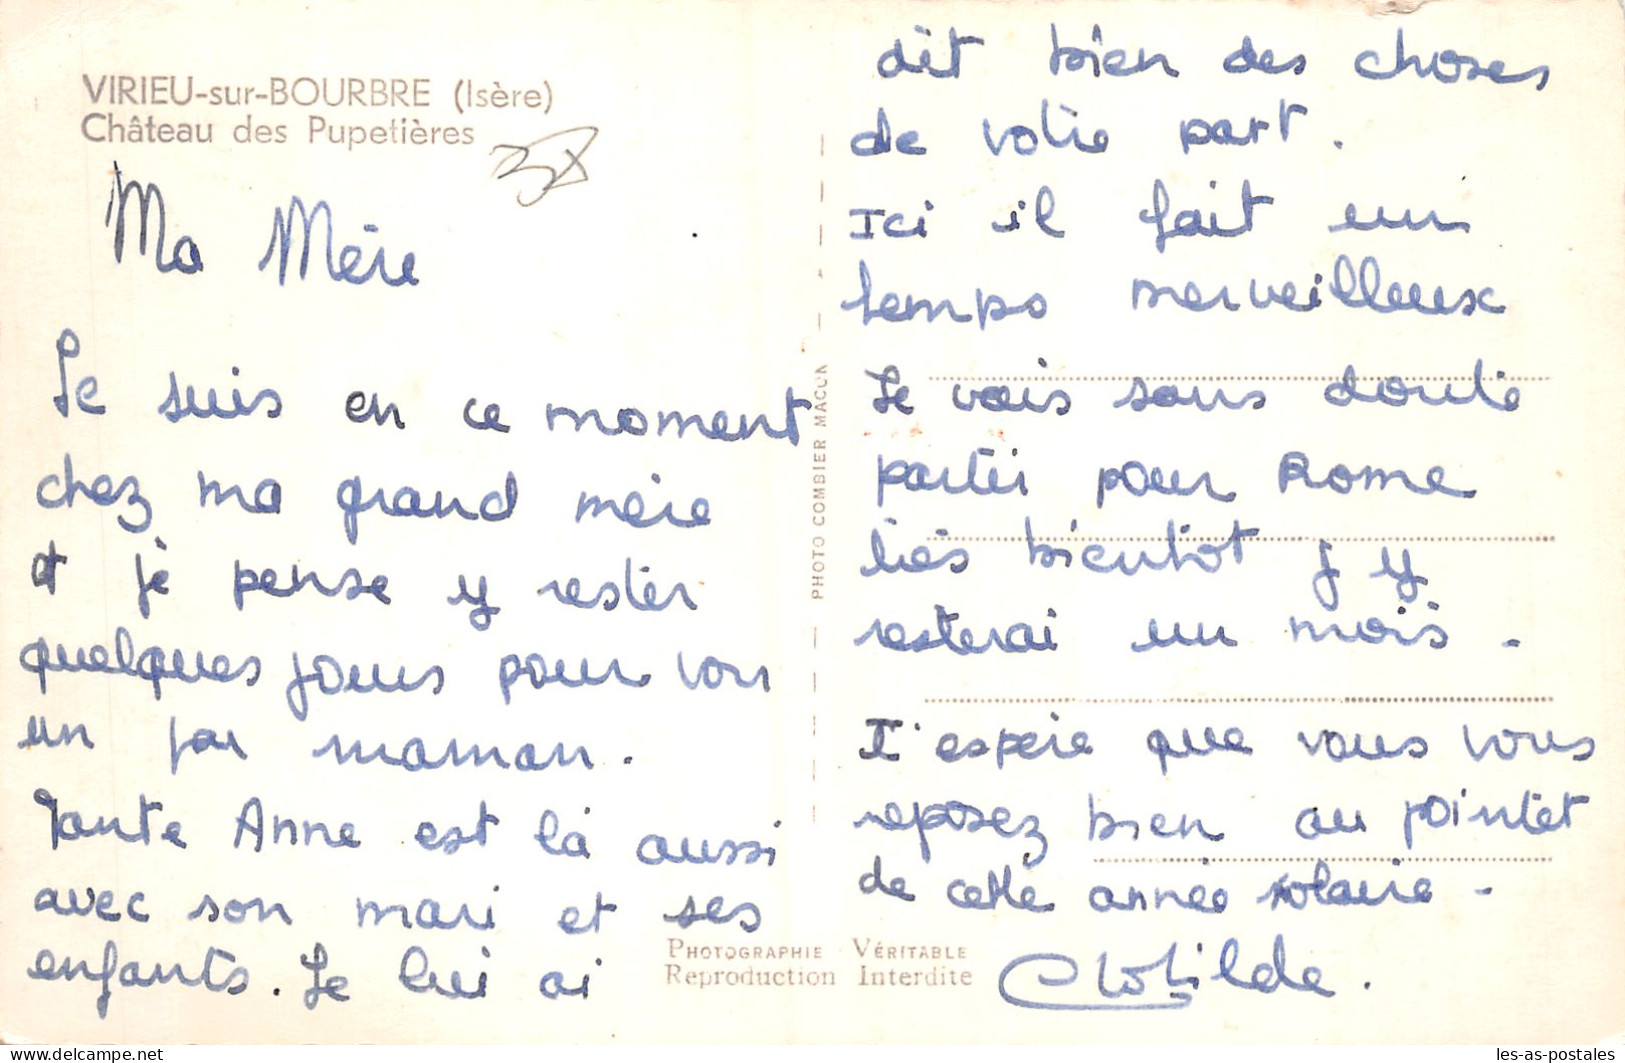 VIRIEU-sur-BOURBRE (Isère)
Château des Pupetières
Ma Mère
Je suis en ce moment
chez ma grand mère
et je pense y rester
quelques jours pour voir
un peu maman.
Tante Anne est là aussi
avec son mari et ses
enfants. Je lui ai
dit bien des choses
de votre part.
Ici il fait un
temps merveilleux
Je vais sans doute
partir pour Rome
très bientôt j y
resterai un mois.
J'espère que vous vous
reposez bien au
de cette année scolaire -
Clotilde.
PHOTO COMBIER MACON
PHOTOGRAPHIE VÉRITABLE
Reproduction Interdite
les-as-postales
delcampe.net